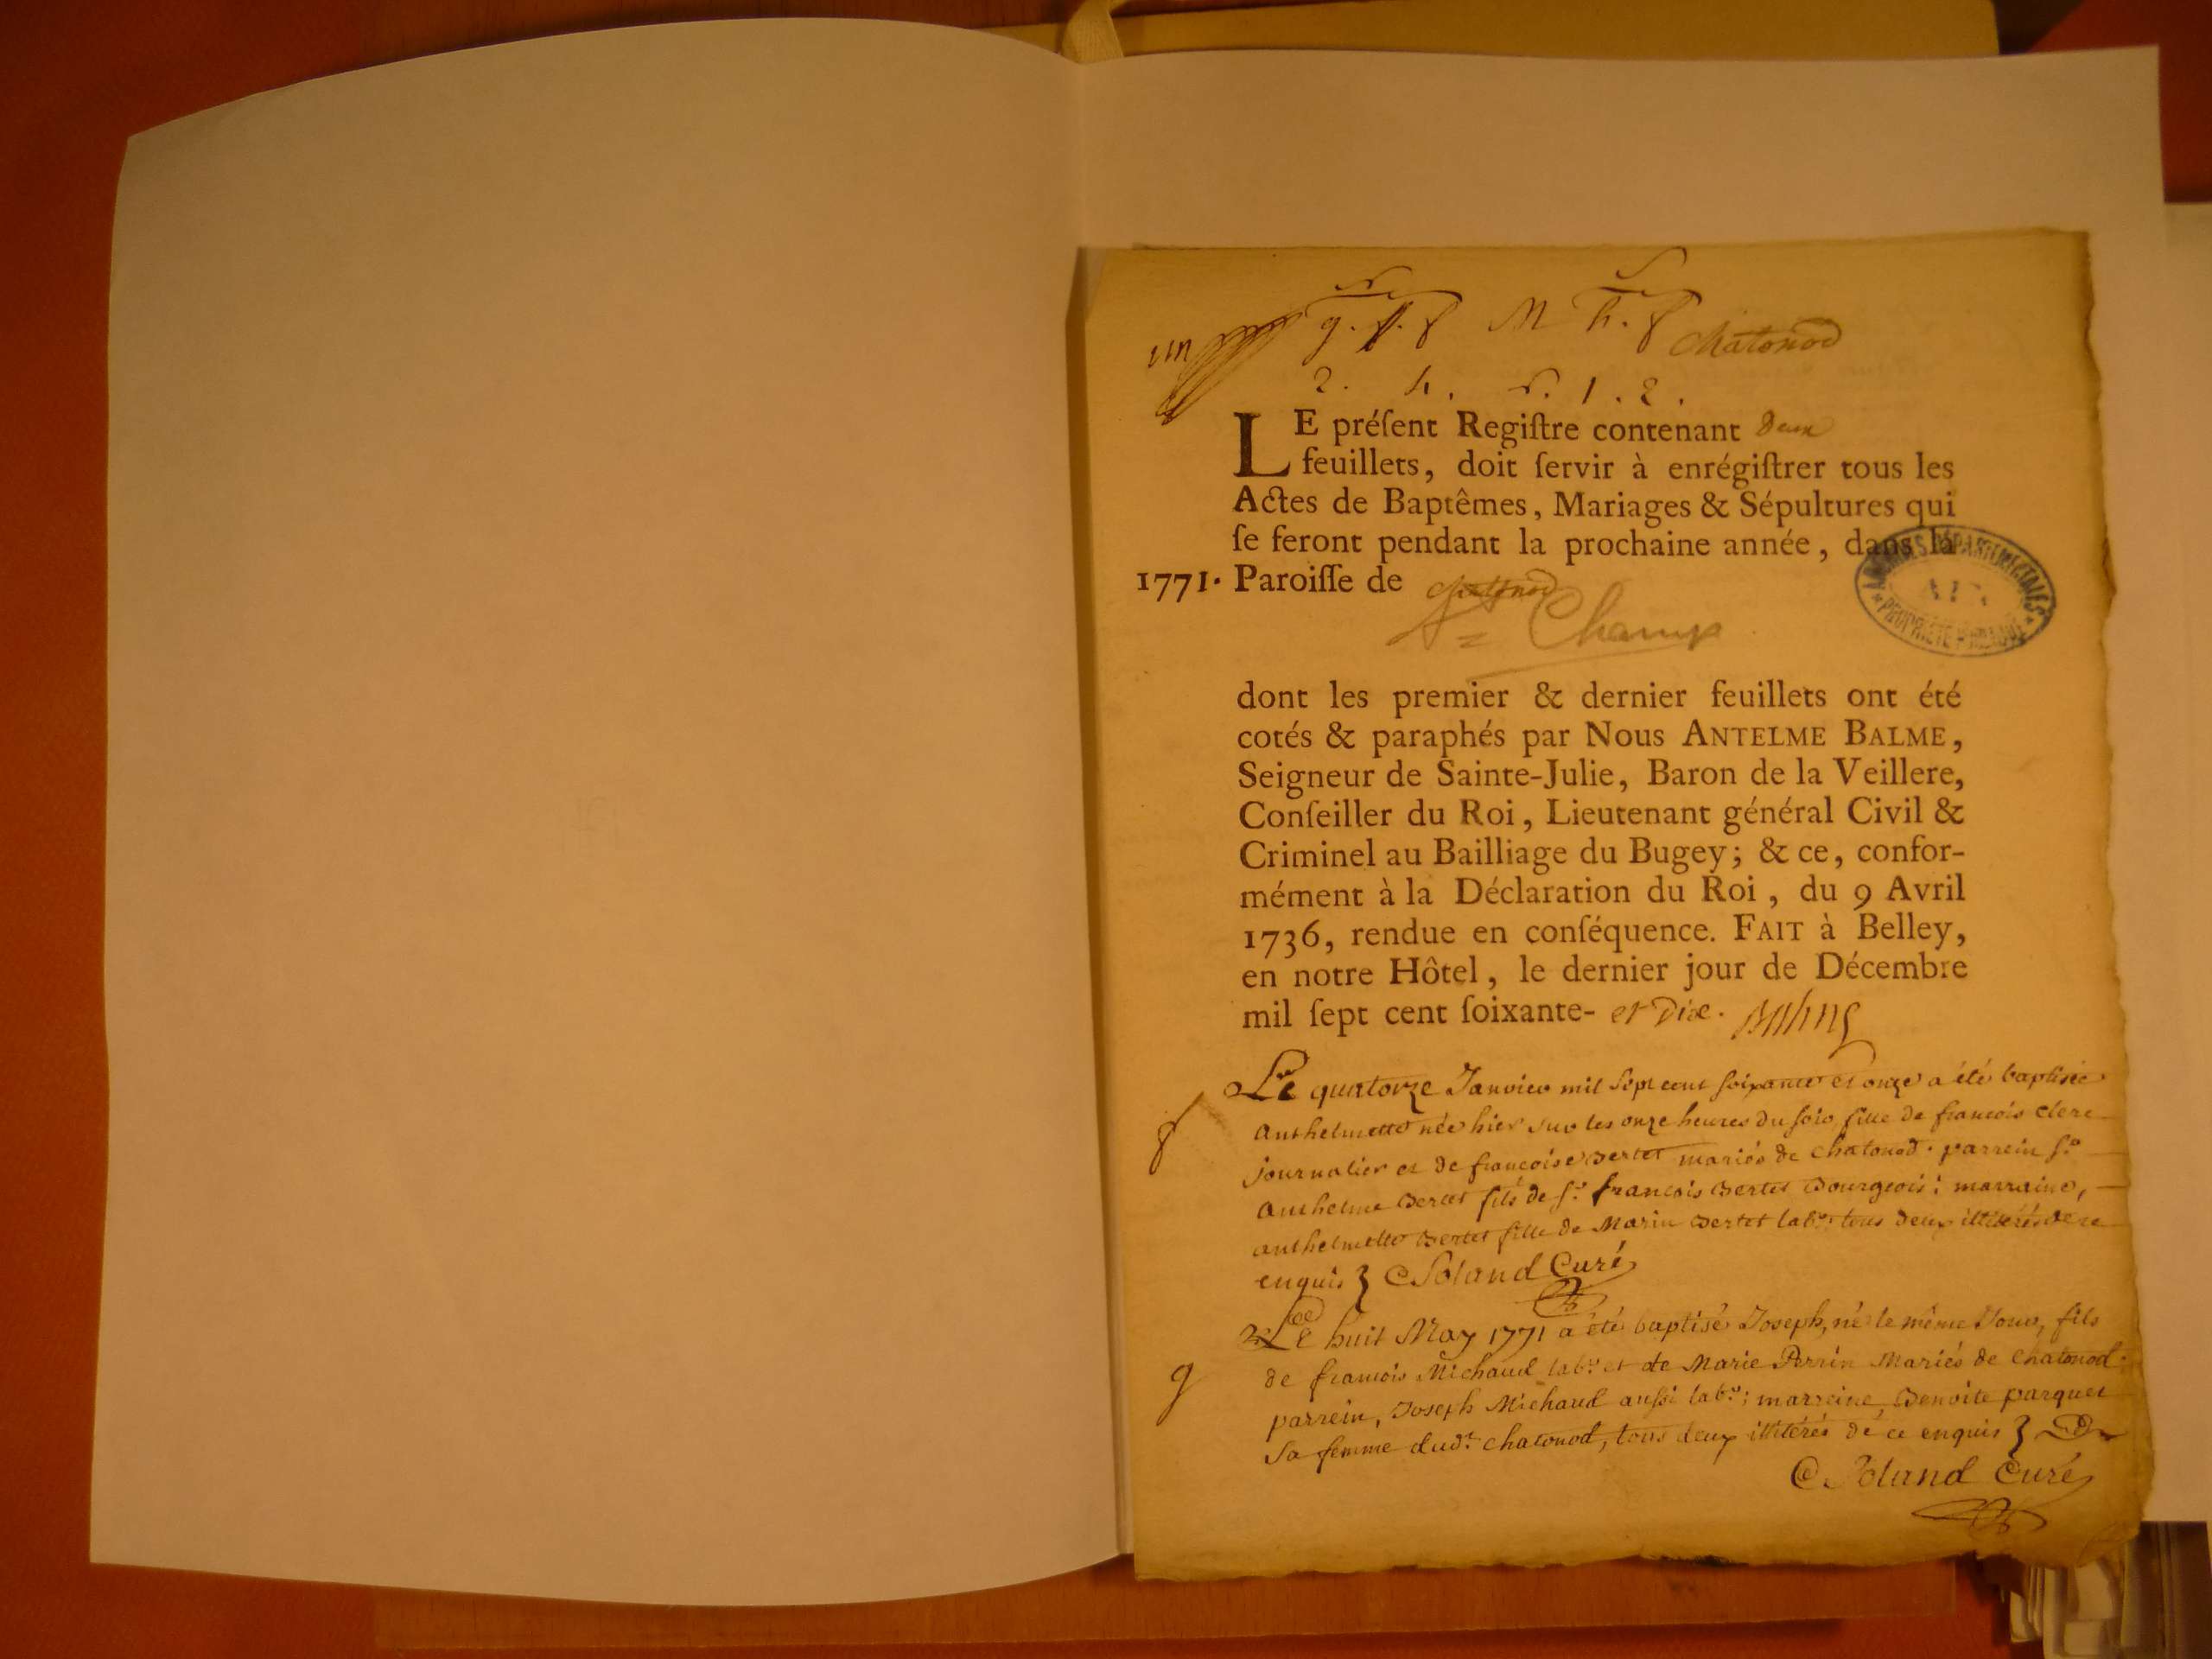 un g. f. M h. f Chatonod
2. h. 1. 2.
LE préſent Regiſtre contenant deux
feuillets, doit ſervir à enrégiſtrer tous les
Actes de Baptêmes, Mariages & Sépultures qui
ſe feront pendant la prochaine année, dans la
1771. Paroiſſe de chatonod
= Champ
ARCHIVES DÉPARTEMENTALES
AIN
PROPRIÉTÉ PUBLIQUE
dont les premier & dernier feuillets ont été
cotés & paraphés par Nous ANTELME BALME,
Seigneur de Sainte-Julie, Baron de la Veillere,
Conſeiller du Roi, Lieutenant général Civil &
Criminel au Bailliage du Bugey; & ce, confor-
mément à la Déclaration du Roi, du 9 Avril
1736, rendue en conſéquence. FAIT à Belley,
en notre Hôtel, le dernier jour de Décembre
mil ſept cent ſoixante- et Dix. Balme
Le quatorze Janvier mil sept cent soixante et onze a été baptisée
f Anthelmette née hier sur les onze heures du soir, fille de francois clerc
journalier et de francoise Bertet mariés de chatonod. parrein s.r
Anthelme Bertet fils de s.r francois Bertet Bourgeois; marraine,
anthelmette Bertet fille de Marin Bertet lab.r tous deux illiterés de ce
enquis } C Roland Curé
Le huit May 1771 a été baptisé Joseph, né le même Jour, fils
g de francois Michaud lab.r et de Marie Perrin Mariés de chatonod.
parrein, Joseph Michaud aussi lab.r; marreine, Benoite parquet
sa femme dud.t chatonod, tous deux illitérés de ce enquis }
C. Roland Curé